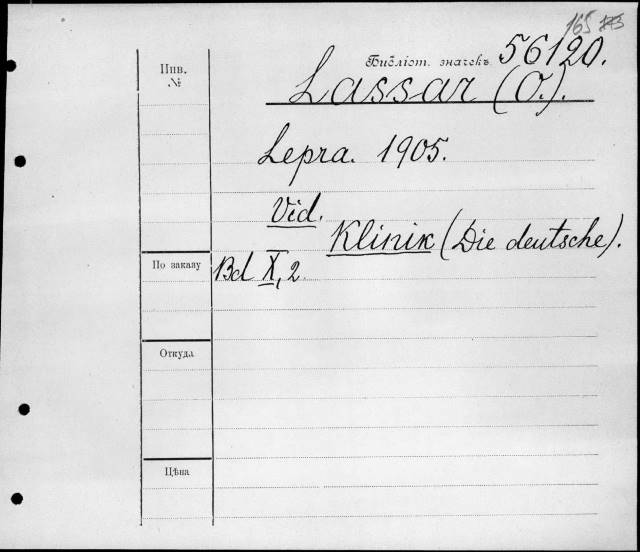 165
Инв.
№
Библіот. значекъ 56120.
Lassar (O.).
Lepra. 1905.
Vid.
Klinik (Die deutsche).
По заказу
Bd X, 2.
Откуда
Цѣна